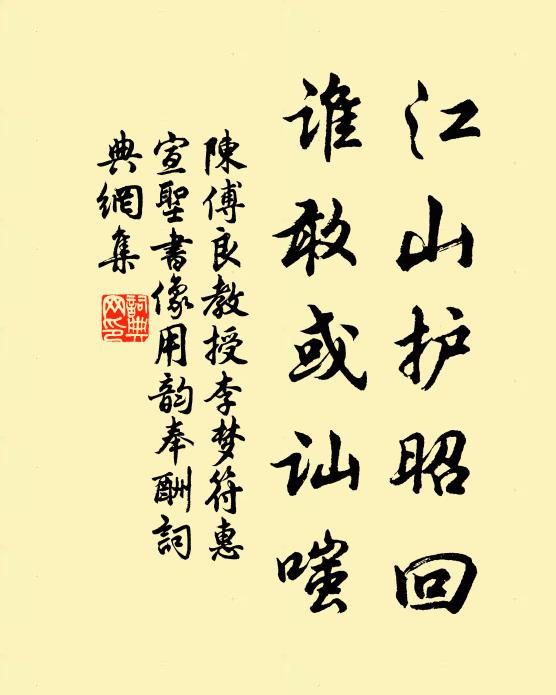 江山护昭回
谁敢或讪嗤
陳傅良教授李梦符惠
宣聖書像用韵奉酬詞
典網集
詞典
网印